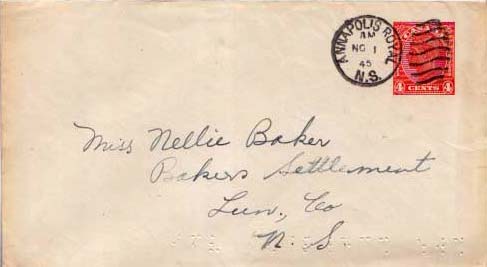 ANNAPOLIS ROYAL
AM
NO 1
45
N.S.
4 CENTS 4
Miss Nellie Baker
Bakers Settlement
Lun, Co
N. S